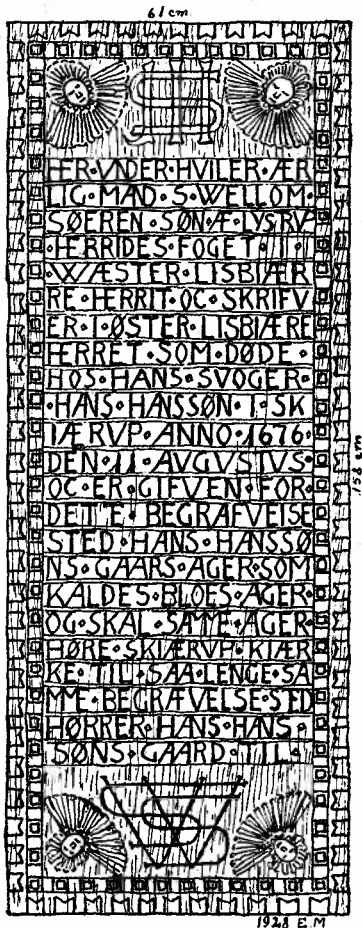 61 cm
HER·VNDER·HVILER·ÆR
LIG·MAD·S·WELLOM·
SØEREN·SØN·Æ·LYSRV
·HERRIDES·FOGET·I
·WÆSTER·LISBIÆR
RE·HERRIT·OC·SKRIFV
ER·I·ØSTER·LISBIÆRE
HERRET·SOM·DØDE·
HOS·HANS·SVOGER·
·HANS·HANSSØN·I·SK
IÆRVP·ANNO·1676·
DEN·11·AVGVSTVS·
OC·ER·GIFVEN·FOR·
DETTE·BEGRAFVELSE
STED·HANS·HANSSØ
NS·GAARS·AGER·SOM
KALDES·BLOES·AGER·
OG·SKAL·SAMME·AGER·
HØRE·SKIÆRVP·KIÆR
KE·TIL·SAA·LENGE·SA
MME·BEGRÆVELSE·STED
HØRRER·HANS·HANS·
SØNS·GAARD·TIL·
158 cm
1928 E.M